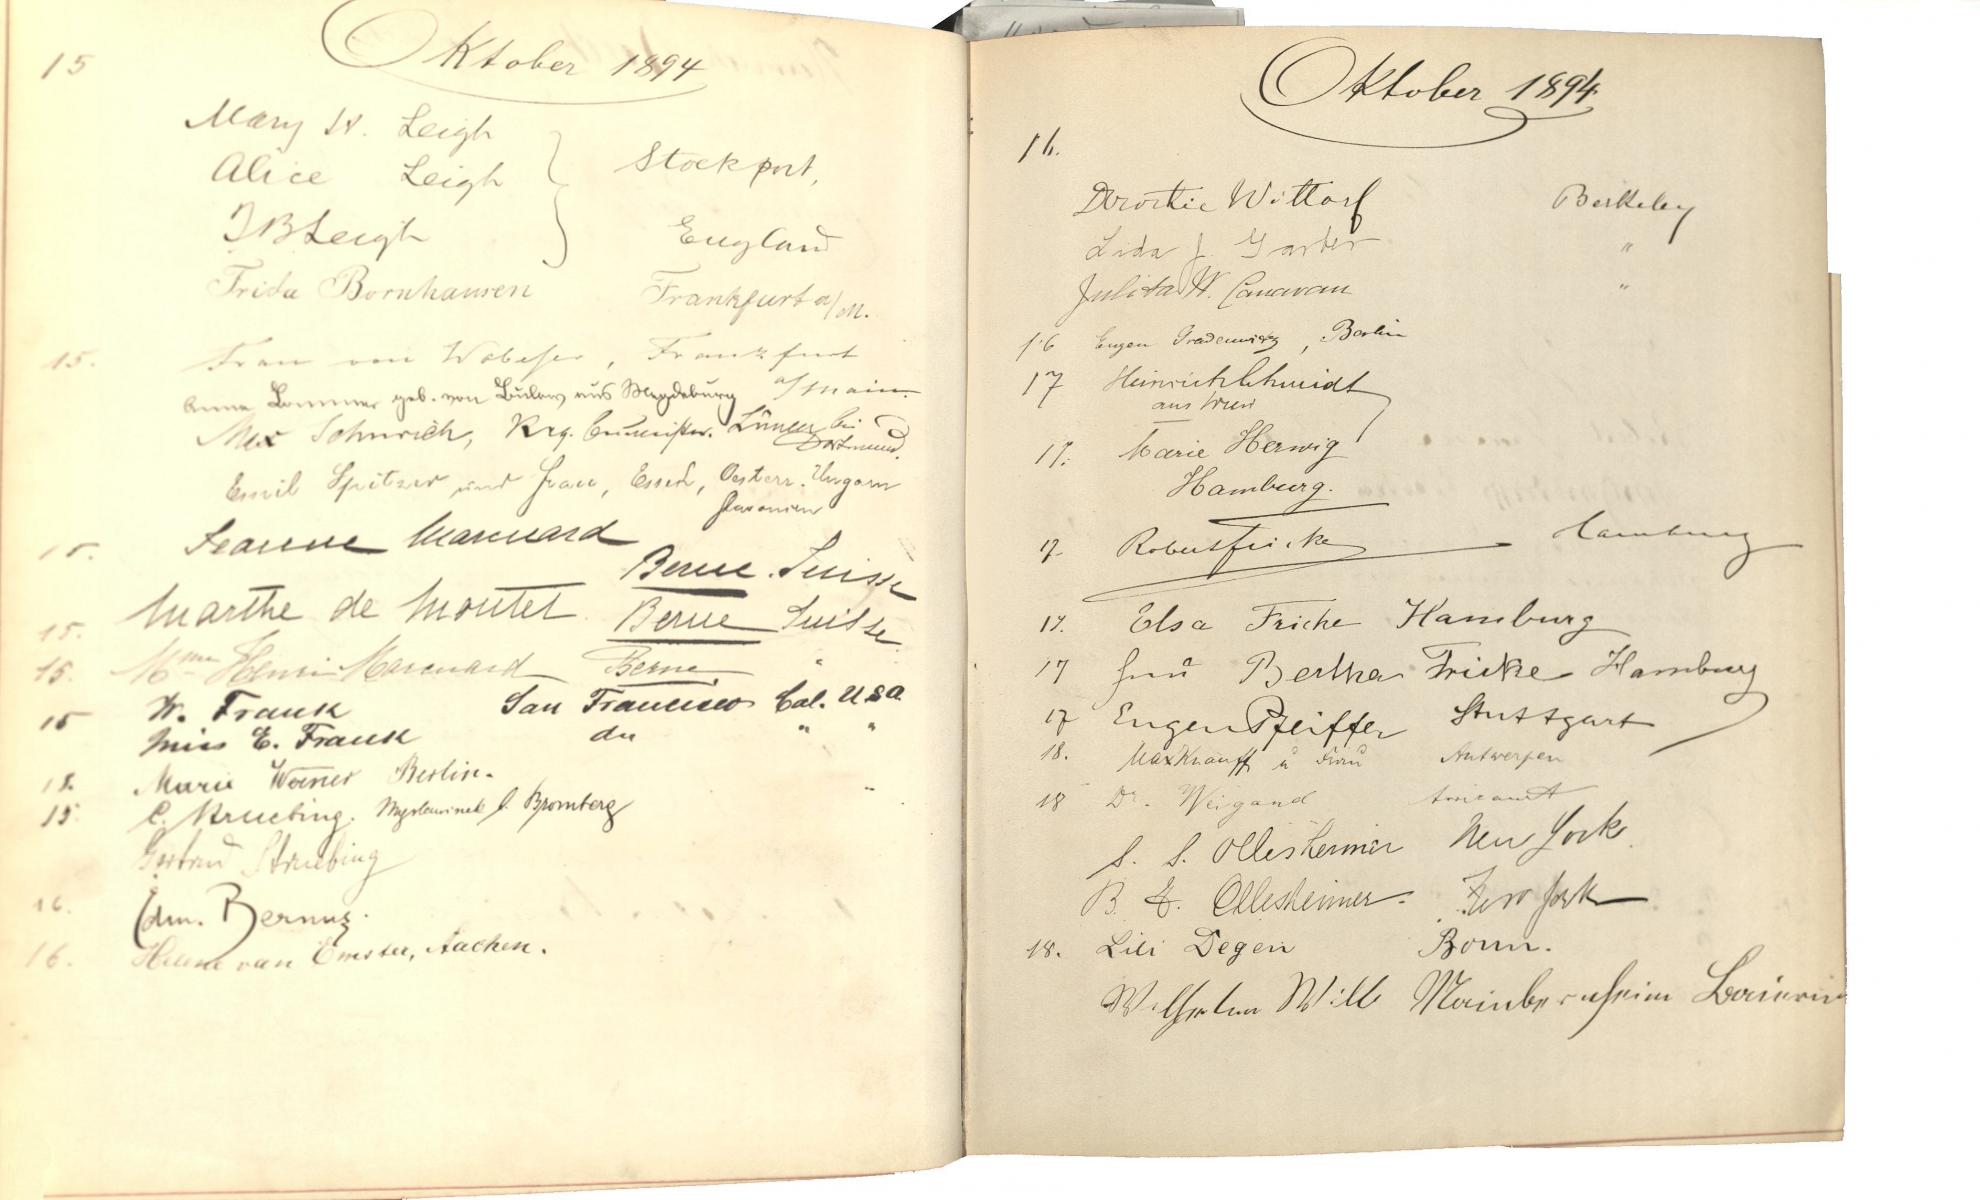 15 Oktober 1894
Mary W. Leigh
Alice Leigh Stockport,
J B Leigh England
Frida Bornhausen Frankfurt a/M.
15. Frau von Wobeser, Frankfurt
a/Main.
Anna geb. von Bülow aus Magdeburg
Max Sohnrich, Lünen bei
Dortmund.
Emil Spitzer und Frau, Essek, Oesterr. Ungarn
Slavonien
15. Jeanne Marcuard
Berne. Suisse
15. Marthe de Montet Berne Suisse
15. Mme Henri Marcuard Berne "
15 W. Frank San Francisco Cal. USA
Miss E. Frank do " "
15. Marie Berlin.
15. C. Struebing. b. Bromberg
Gertrud Struebing
16. Edm. Bernus.
16. Helene van Emster, Aachen.
Oktober 1894
16.
Dorothie Wittorf Berkeley
Lida J. "
Julita W. Canavan "
16 Eugen Gradenwitz, Berlin
17 Heinrich Schmidt
aus Wien
17. Marie Herwig
Hamburg.
17. Robert Fricke Hamburg
17. Elsa Fricke Hamburg
17 Frau Bertha Fricke Hamburg
17 Eugen Pfeiffer Stuttgart
18. Max Knauff u Frau Antwerpen
18 Dr. Weigand
S. S. Ollesheimer New York
B. Ollesheimer. New York
18. Lili Degen Bonn.
Wilhelm Will Mainbernheim Baiern